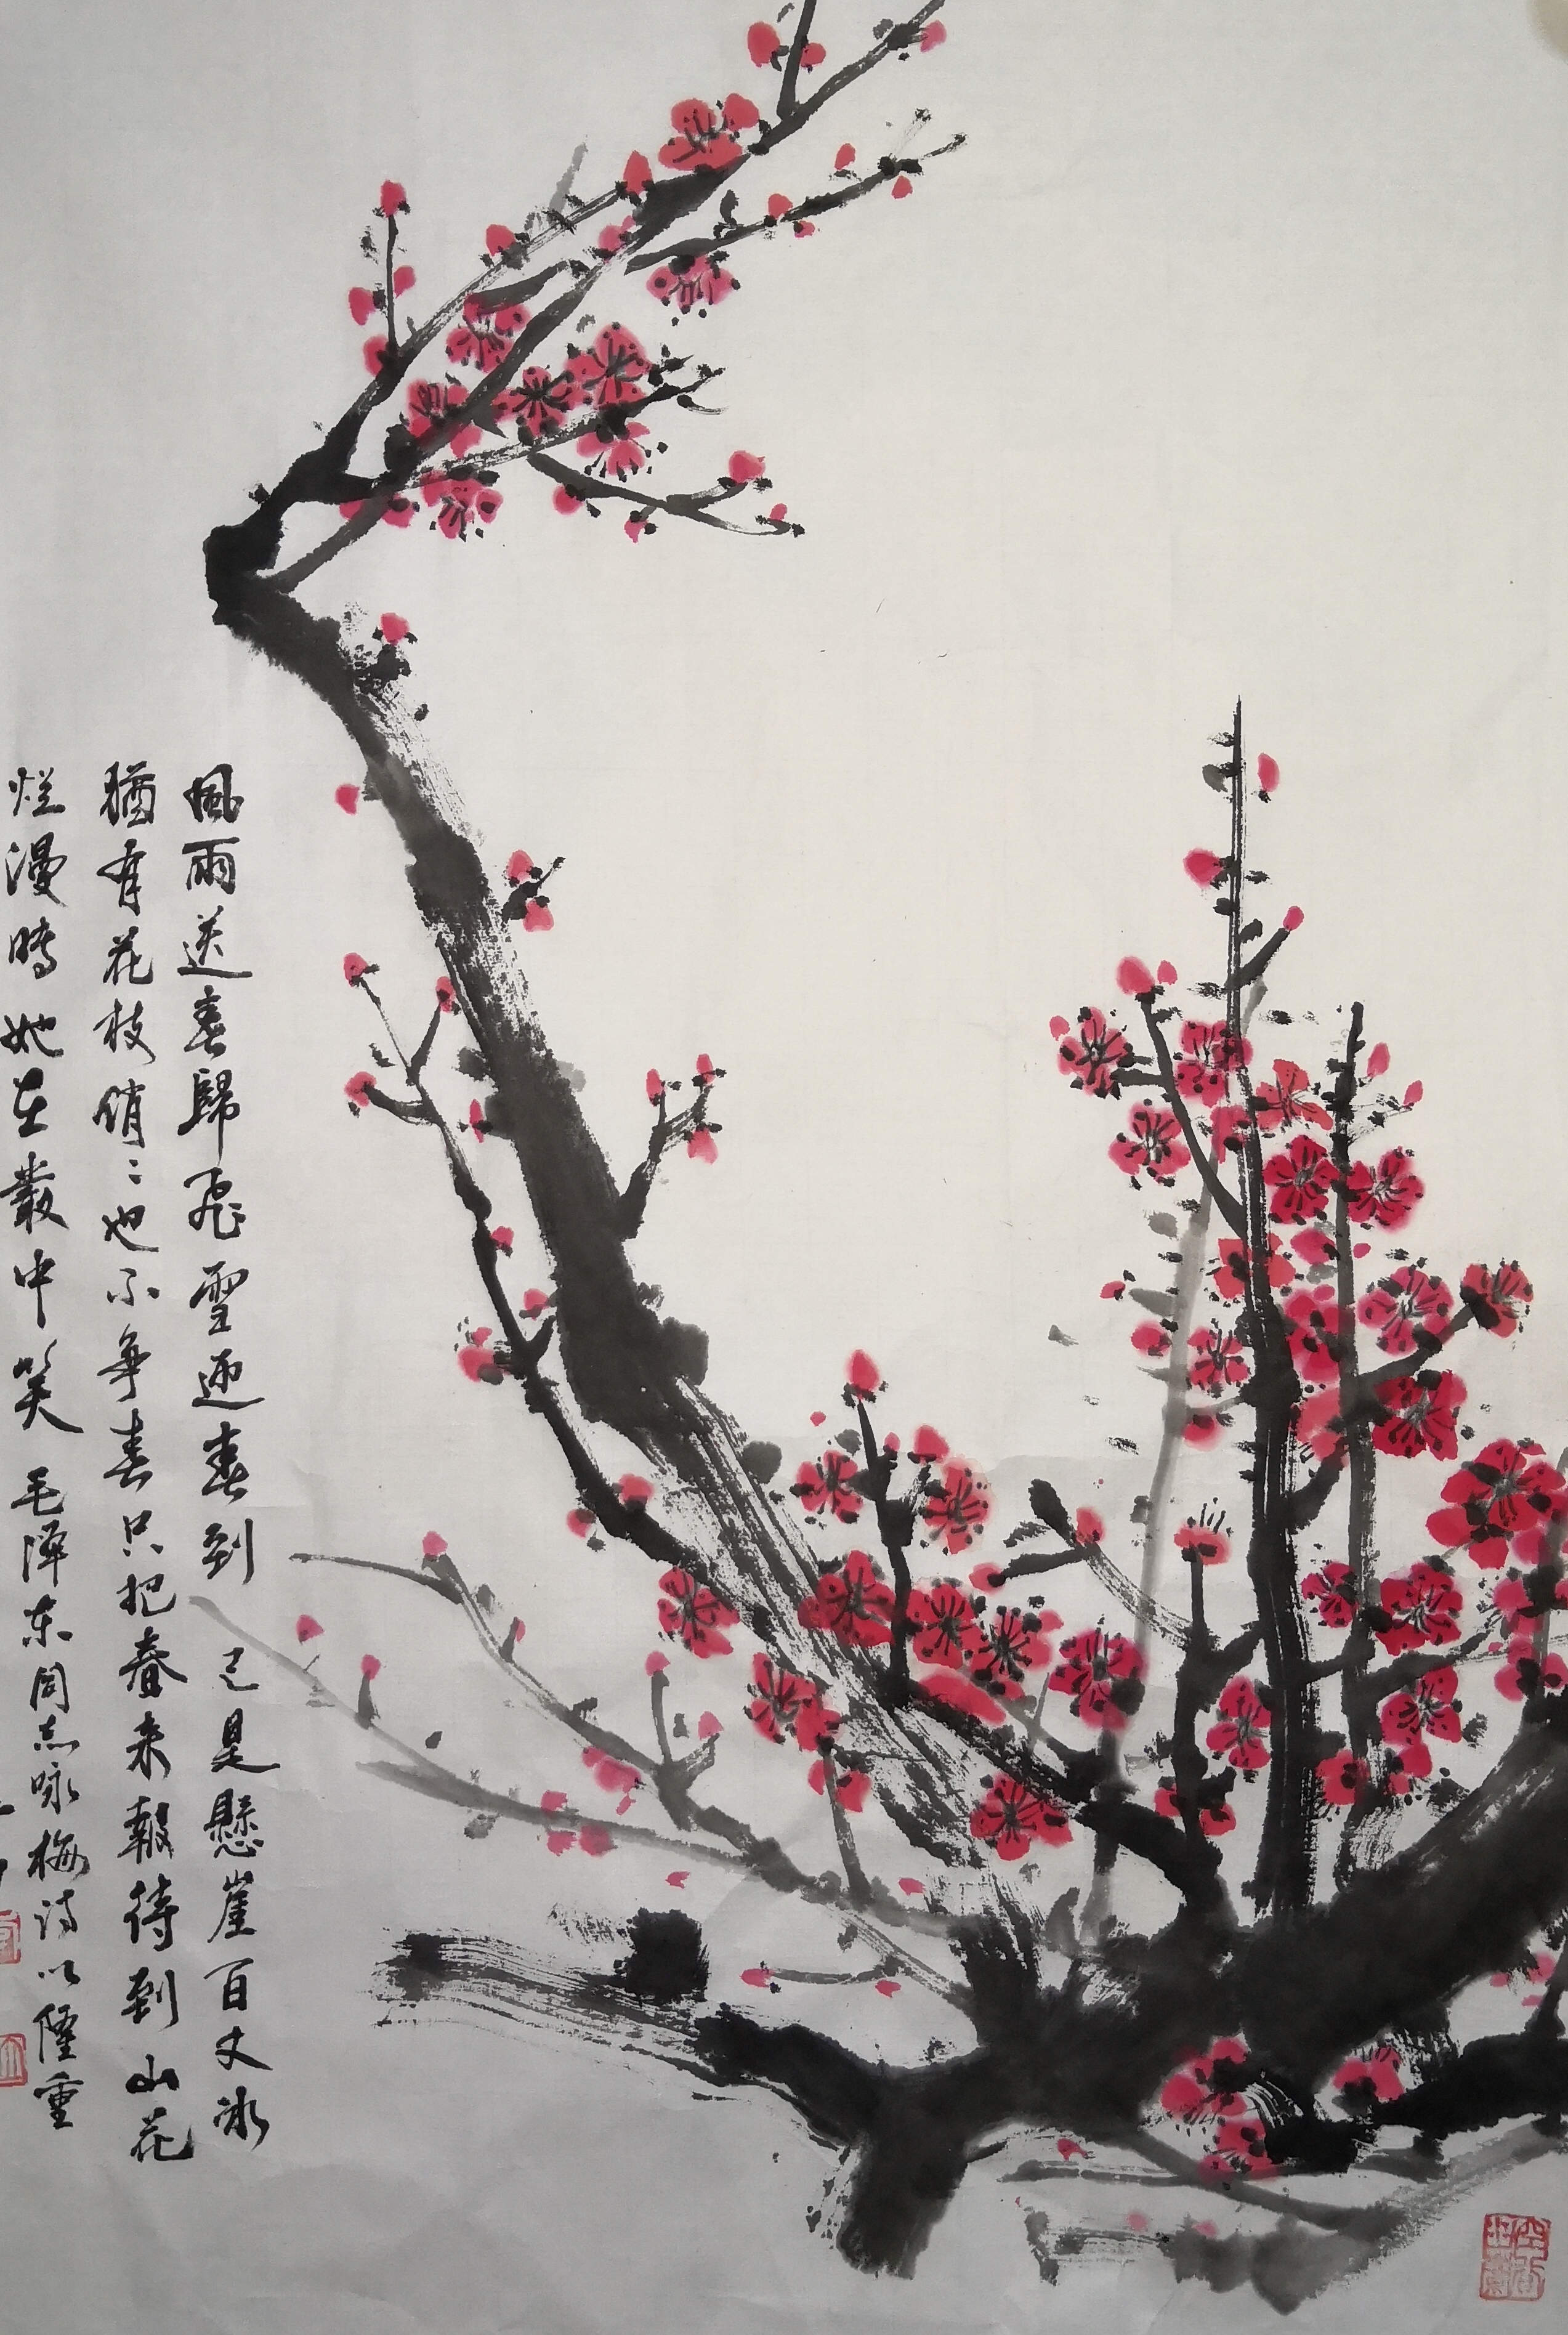 風雨送春歸飛雪迎春到 已是懸崖百丈冰
猶有花枝俏々也不争春只把春来報待到山花
烂漫時她在叢中笑 毛泽东同志咏梅诗以 重